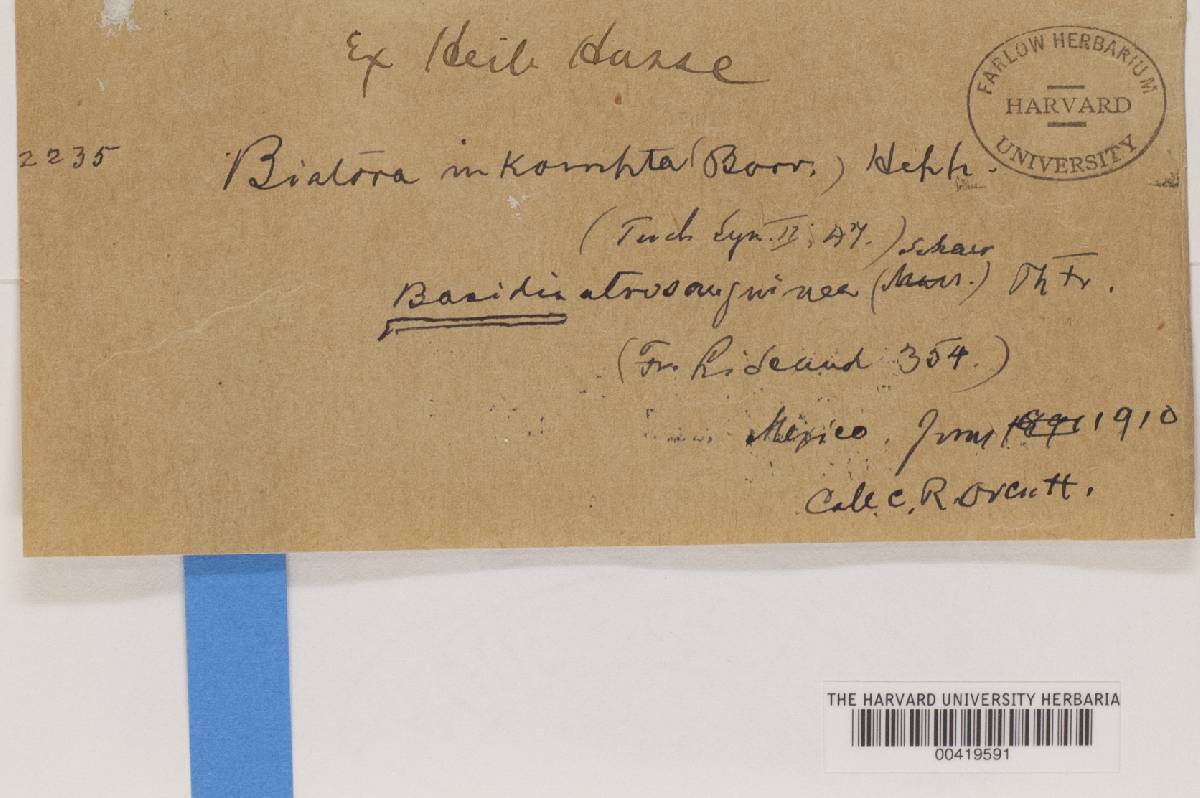 Ex Herb Hasse
FARLOW HERBARIUM
HARVARD
UNIVERSITY
2235 Biatora inkompta (Borr.) Hepp.
(Tuck Syn. II, 27.) Schaer
Bacidia atrosanguinea (.) Th Fr.
(Fr. L. Scand 354.)
Mexico, 1910
Coll. C. R. Orcutt.
THE HARVARD UNIVERSITY HERBARIA
00419591